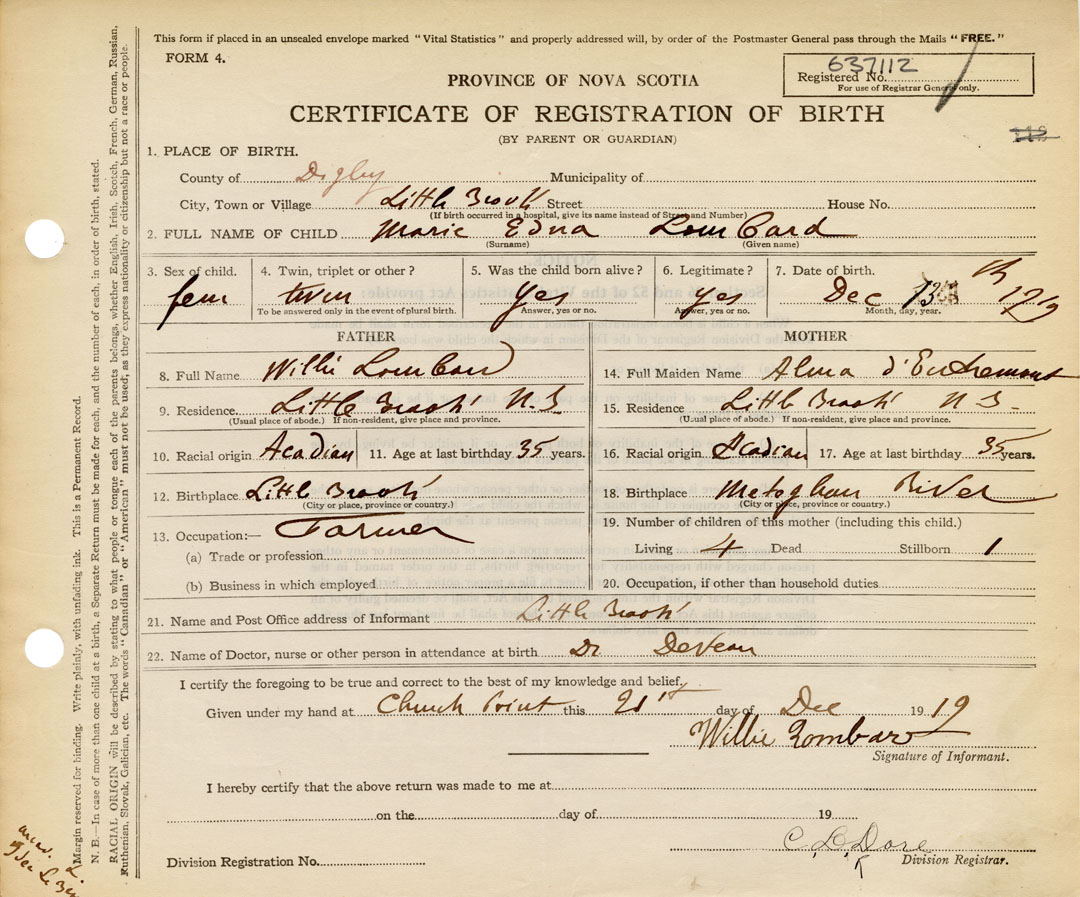 This form if placed in an unsealed envelope marked "Vital Statistics" and properly addressed will, by order of the Postmaster General pass through the Mails "FREE."
FORM 4.
637112
Registered No.
For use of Registrar General only.
PROVINCE OF NOVA SCOTIA
CERTIFICATE OF REGISTRATION OF BIRTH
(BY PARENT OR GUARDIAN)
1. PLACE OF BIRTH.
County of Digby Municipality of
City, Town or Village Little Brook Street House No.
(If birth occurred in a hospital, give its name instead of Street and Number)
2. FULL NAME OF CHILD Marie Edna Lombard
(Surname) (Given name)
3. Sex of child. 4. Twin, triplet or other? 5. Was the child born alive? 6. Legitimate? 7. Date of birth.
fem twin Yes Yes Dec 13 th 1919
To be answered only in the event of plural birth. Answer, yes or no. Answer, yes or no. Month, day, year.
FATHER MOTHER
8. Full Name Willie Lombard 14. Full Maiden Name Alma d'Entremont
9. Residence Little Brook N.S. 15. Residence Little Brook N S
(Usual place of abode.) If non-resident, give place and province. (Usual place of abode.) If non-resident, give place and province.
10. Racial origin Acadian 11. Age at last birthday 35 years. 16. Racial origin Acadian 17. Age at last birthday 35 years.
12. Birthplace Little Brook 18. Birthplace Meteghan River
(City or place, province or country.) (City or place, province or country.)
13. Occupation:— Farmer 19. Number of children of this mother (including this child.)
(a) Trade or profession Living 4 Dead Stillborn 1
(b) Business in which employed 20. Occupation, if other than household duties.
21. Name and Post Office address of Informant Little Brook
22. Name of Doctor, nurse or other person in attendance at birth Dr DeVeau
I certify the foregoing to be true and correct to the best of my knowledge and belief.
Given under my hand at Church Point this 21st day of Dec 1919
Willie Lombard
Signature of Informant.
I hereby certify that the above return was made to me at
on the day of 19
C. L. Dore
Division Registrar.
Division Registration No.
Margin reserved for binding. Write plainly, with unfading ink. This is a Permanent Record.
N. B.—In case of more than one child at a birth, a Separate Return must be made for each, and the number of each, in order of birth, stated.
RACIAL ORIGIN will be described by stating to what people or tongue each of the parents belongs, whether English, Irish, Scotch, French, German, Russian,
Ruthenian, Slovak, Galician, etc. The words "Canadian" or "American" must not be used, as they express nationality or citizenship but not a race or people.